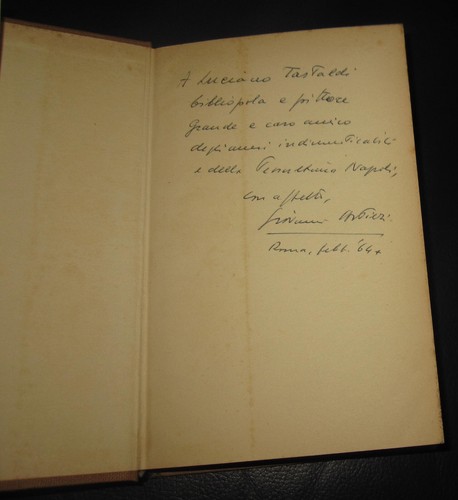 A Luciano Tastaldi
bibliopola e pittore
Grande e caro amico
degli anni indimenticabili
e della Napoli,
con affetto,
Giovanni Artieri
Roma, febb. '64